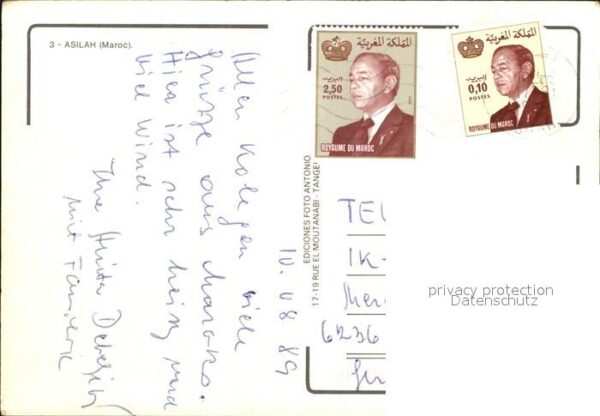 3 - ASILAH (Maroc).
Allen Kolegen viele
Grüsse aus Marokko.
Hier ist sehr heiss und
viel Wind.
Ihre
mit Familie
10.08.89
EDICIONES FOTO ANTONIO
17-19 RUE EL MOUTANABI - TANGE
المملكة المغربية
2,50
البريد
POSTES
ROYAUME DU MAROC
المملكة المغربية
البريد
0,10
POSTES
ROYAUME DU MAROC
TE
IK-
6236
privacy protection
Datenschutz